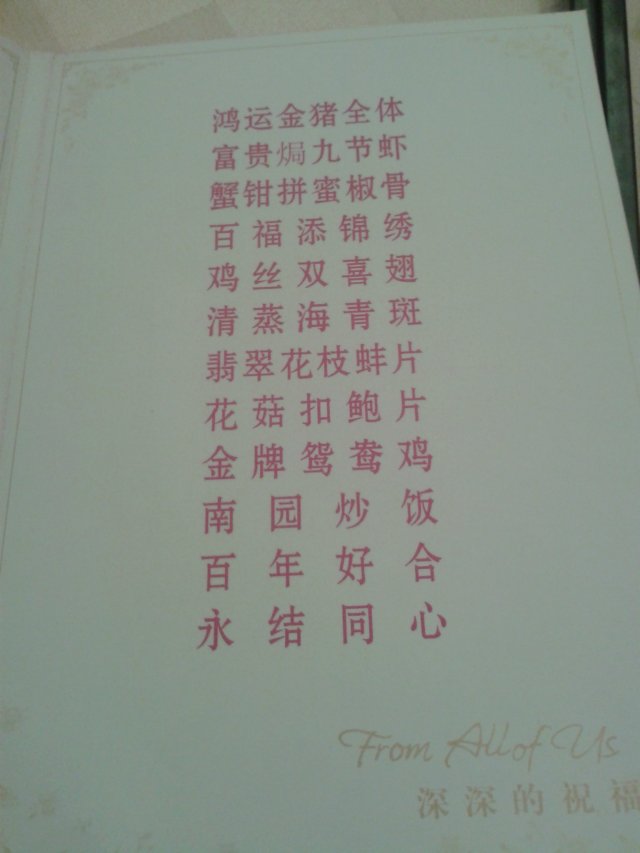 鸿运金猪全体
富贵焗九节虾
蟹钳拼蜜椒骨
百福添锦绣
鸡丝双喜翅
清蒸海青斑
翡翠花枝蚌片
花菇扣鲍片
金牌鸳鸯鸡
南园炒饭
百年好合
永结同心
From All of Us
深深的祝福